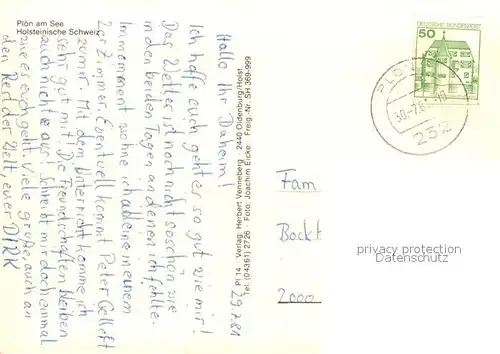 Plön am See
Holsteinische Schweiz
29.7.81
Hallo Ihr Daheim!
Ich hoffe euch geht er so gut wie mir!
Das Wetter ist noch nicht so schön wie
in den beiden Tagen an denen ich fehlte.
Im moment wohne ich alleine in einem
2er Zimmer. Eventuell kommt Peter
zu mir. Mit dem Unterricht komme ich
sehr gut mit! Die Freundschaften bleiben
auch nicht aus! Schreibt mir doch einmal
wie er euch geht. Viele grüße, auch an
den Rest der Welt, euer DIRK
Pl 14 Verlag: Herbert Venneberg 2440 Oldenburg/Holst.
Tel. (04361) 2726 Foto: Joachim Eicke Freig.-Nr. SH 369-999
DEUTSCHE BUNDESPOST
50
232
Fam
Bockt
2000
privacy protection
Datenschutz